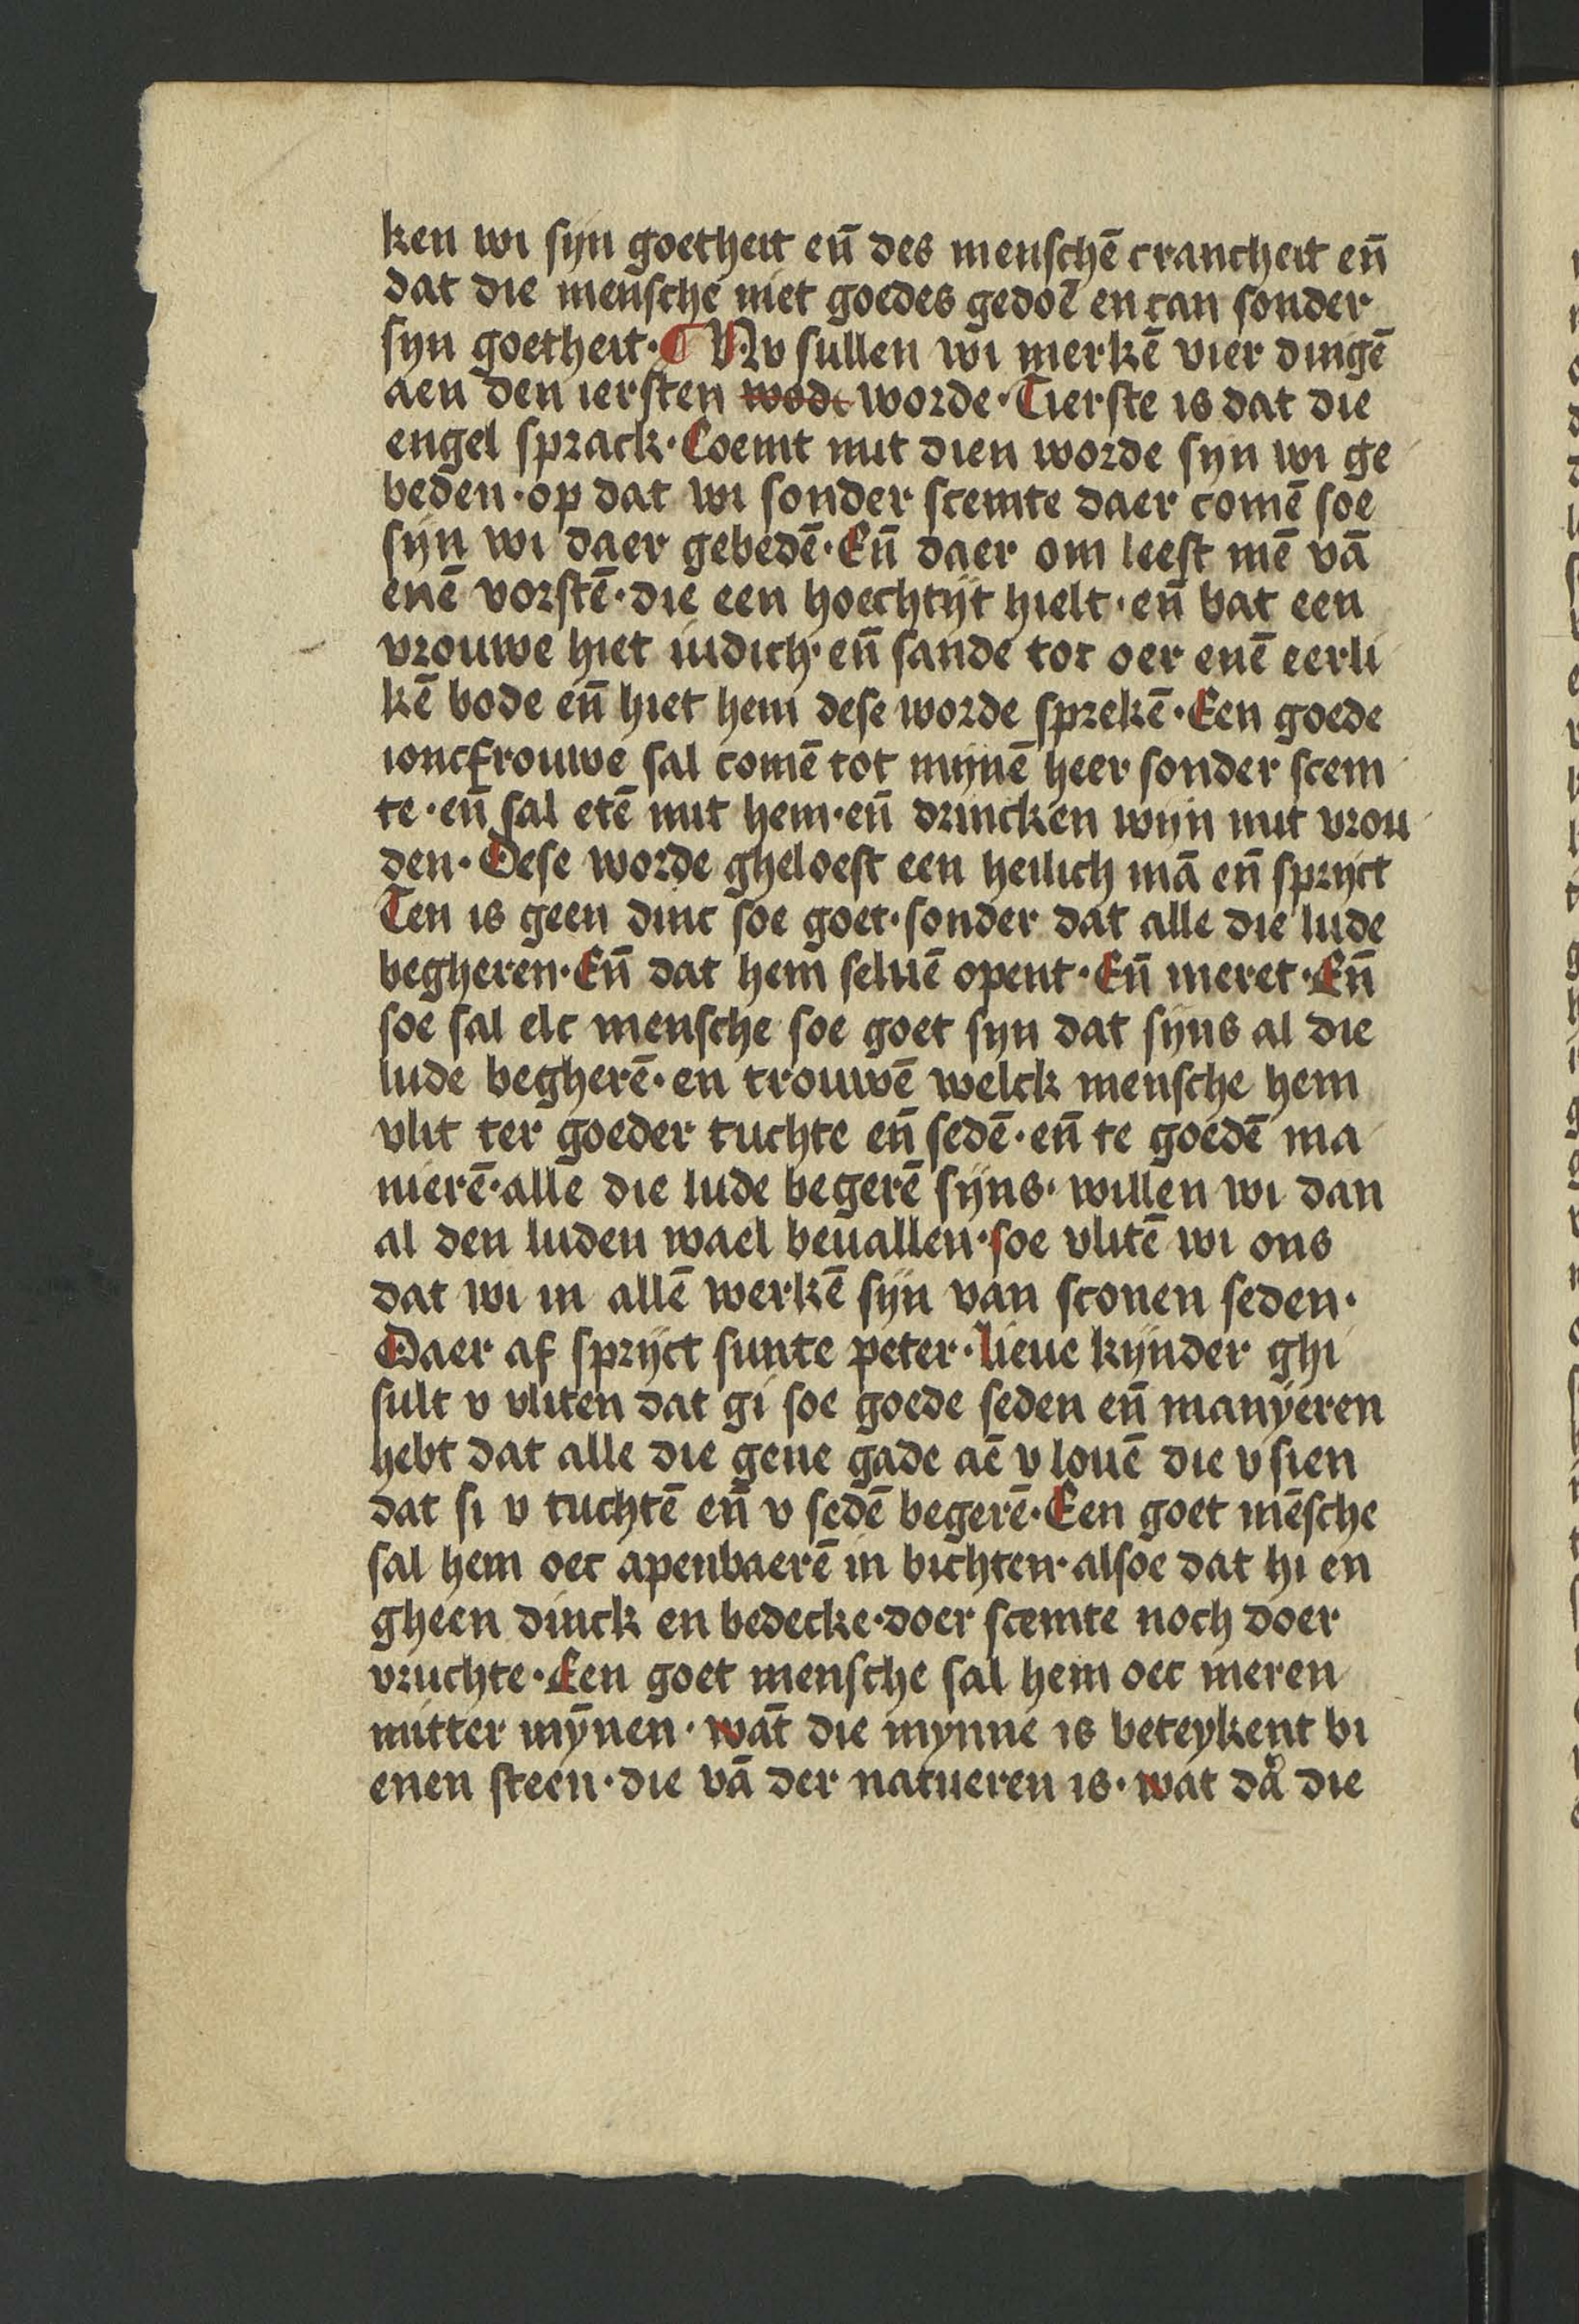 ken wi syn goetheit eñ des menschē crancheit eñ
dat die mensche niet goedes gedoē en can sonder
syn goetheit · ¶ Nv sullen wi merkē vier dingē
aen den iersten wode worde · Tierste is dat die
engel sprack · Coemt mit dien worde syn wi ge
beden · op dat wi sonder scemte daer comē soe
sijn wi daer gebedē · Eñ daer om leest mē vā
enē vorstē · die een hoechtijt hielt · eñ bat een
vrouwe hiet iudich · eñ sande tot oer enē eerli
kē bode eñ hiet hem dese worde sprekē · Een goede
ioncfrouwe sal comē tot mijnē heer sonder scem
te · eñ sal etē mit hem · eñ drincken wijn mit vrou
den · Dese worde gheloest een heilich mā eñ sprijct
Ten is geen dinc soe goet · sonder dat alle die lude
begheren · Eñ dat hem seluē opent · Eñ meret · Eñ
soe sal elc mensche soe goet syn dat sijns al die
lude begherē · en trouwē welck mensche hem
vlit ter goeder tuchte eñ sedē · eñ te goedē ma
nierē · alle die lude begerē sijns · willen wi dan
al den luden wael beuallen · soe vlitē wi ons
dat wi in allē werkē sijn van sconen seden ·
Daer af sprijct sunte peter · lieue kijnder ghi
sult v vliten dat gi soe goede seden eñ manyeren
hebt dat alle die gene gade aē v louē die v sien
dat si v tuchtē eñ v sedē begerē · Een goet mēsche
sal hem oec apenbaerē in bichten · alsoe dat hi en
gheen dinck en bedecke · doer scemte noch doer
vruchte · Een goet mensche sal hem oec meren
mitter mȳnen · wāt die mynne is beteykent bi
enen steen · die vā der natueren is · wat dar die